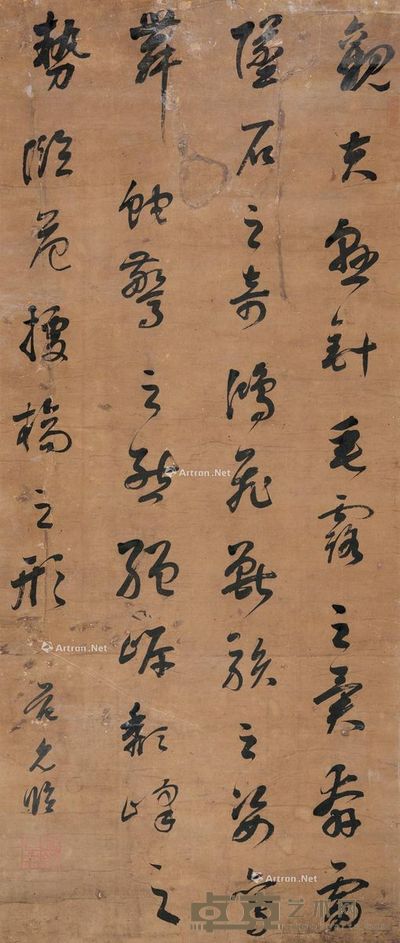 觀夫懸針垂露之異奔雷
墜石之奇鴻飛獸駭之姿鸞
舞蛇驚之態絕岸頹峰之
勢臨危據槁之形
范允臨
Artron.Net
Artron.Net
Artron.Net
Artron.Net
艺术网